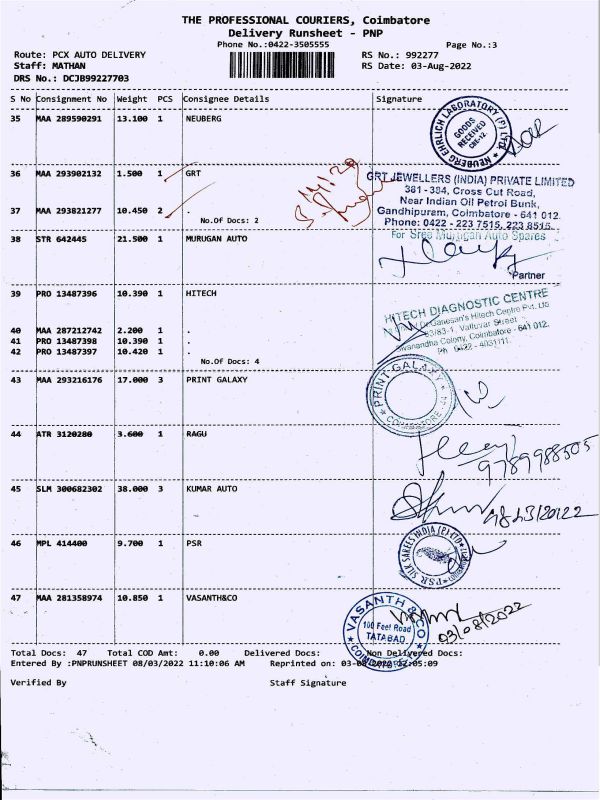 THE PROFESSIONAL COURIERS, Coimbatore
Delivery Runsheet - PNP
Phone No.:0422-3505555
Page No.:3
Route: PCX AUTO DELIVERY
RS No.: 992277
Staff: MATHAN
RS Date: 03-Aug-2022
DRS No.: DCJB99227703
S No Consignment No Weight PCS Consignee Details Signature
35 MAA 289590291 13.100 1 NEUBERG
NEUBERG EHRLICH LABORATORY (P) LTD.
GOODS
RECEIVED
CBE-12.
36 MAA 293902132 1.500 1 GRT
GRT JEWELLERS (INDIA) PRIVATE LIMITED
381 - 384, Cross Cut Road,
Near Indian Oil Petrol Bunk,
37 MAA 293821277 10.450 2 .
Gandhipuram, Coimbatore - 641 012.
No.Of Docs: 2
Phone: 0422 - 223 7515, 223 8515
38 STR 642445 21.500 1 MURUGAN AUTO
For Sree Murugan Auto Spares
Partner
39 PRO 13487396 10.390 1 HITECH
HITECH DIAGNOSTIC CENTRE
Ganesan's Hitech Centre Pvt. Ltd
83/83-1, Valluvar Street
40 MAA 287212742 2.200 1 .
Colony, Coimbatore - 641 012.
41 PRO 13487398 10.390 1 .
Ph 0422 - 4031111.
42 PRO 13487397 10.420 1 .
No.Of Docs: 4
43 MAA 293216176 17.000 3 PRINT GALAXY
PRINT GALAXY
COIMBATORE - 44
44 ATR 3120280 3.600 1 RAGU
9789988505
45 SLM 300682302 38.000 3 KUMAR AUTO
9843120122
46 MPL 414400 9.700 1 PSR
PSR SILK SAREES INDIA (P) LTD
47 MAA 281358974 10.850 1 VASANTH&CO
VASANTH & CO
100 Feet Road
TATABAD
COIMBATORE
03/08/2022
Total Docs: 47 Total COD Amt: 0.00 Delivered Docs: Non Delivered Docs:
Entered By :PNPRUNSHEET 08/03/2022 11:10:06 AM Reprinted on: 03-08-2022 12:05:09
Verified By Staff Signature